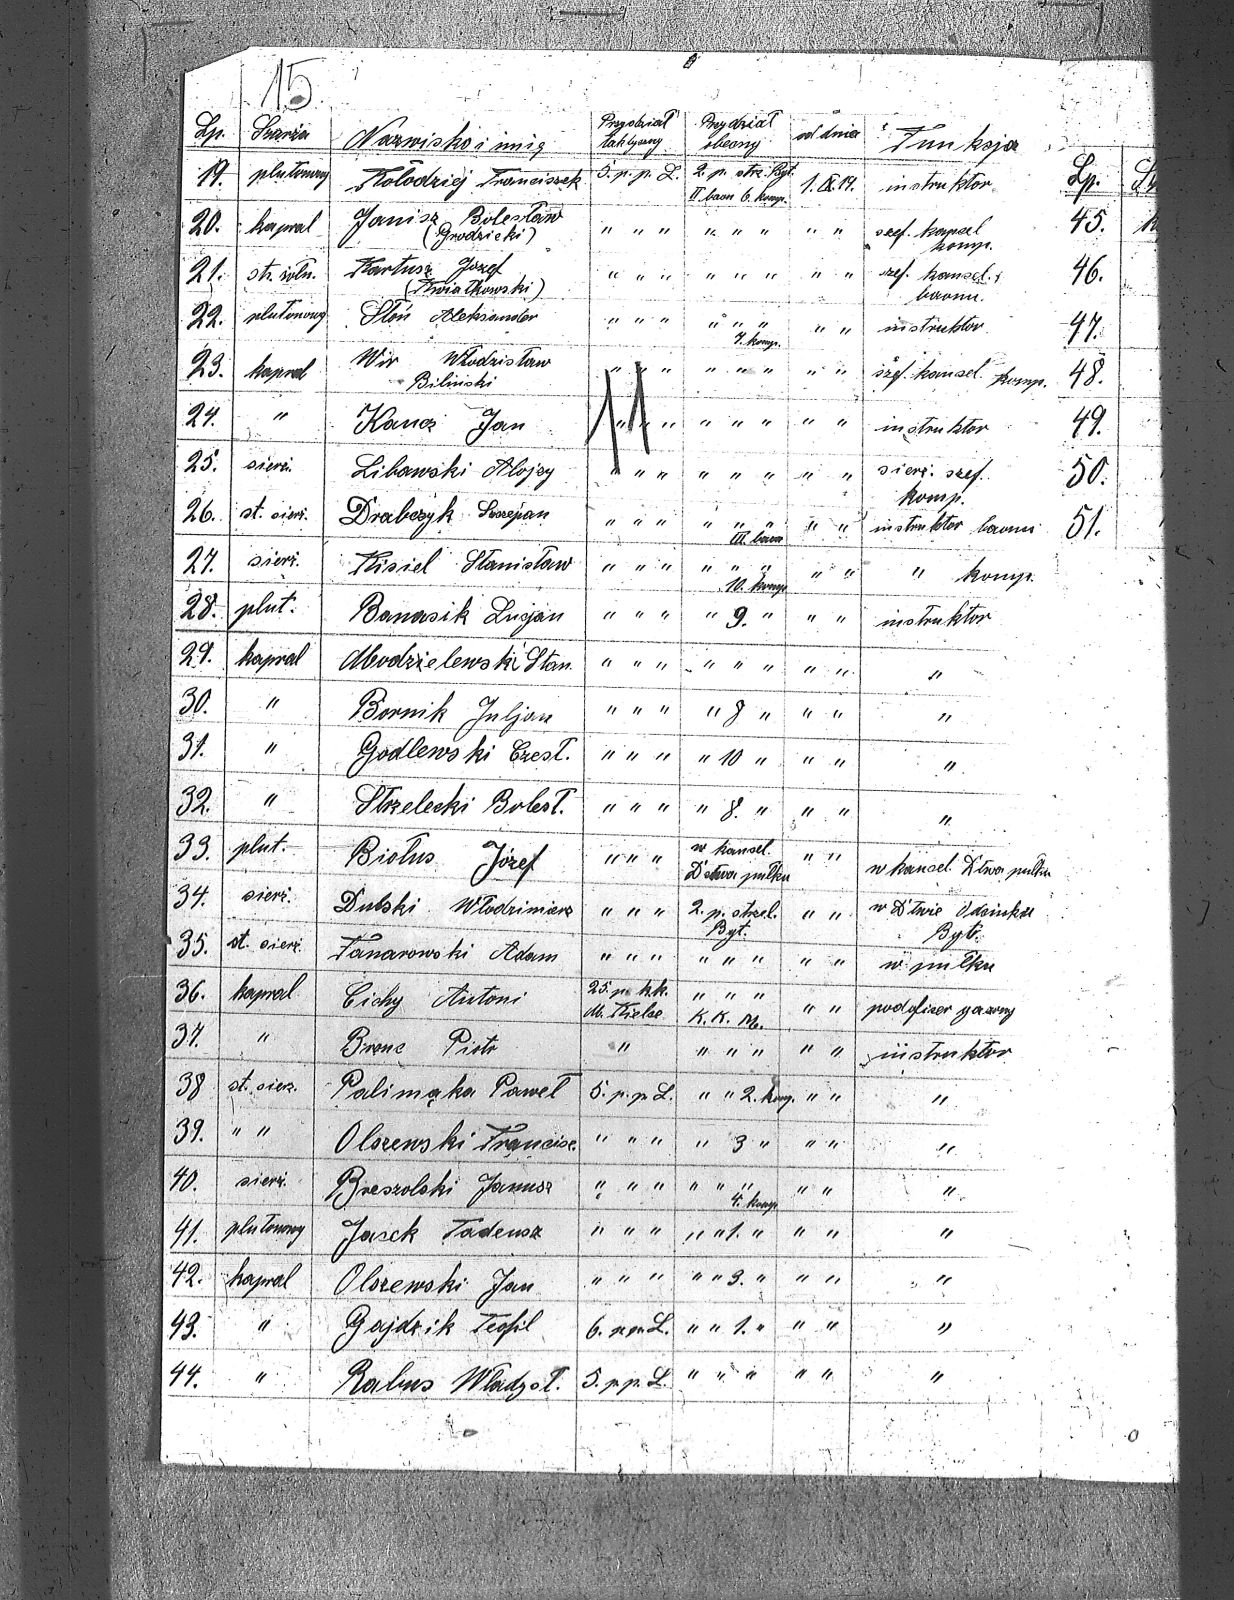 15
Lp. Szarża Nazwisko i imię Przydział taktyczny Przydział obecny od dnia Funksja
19. plutonowy Kołodziej Franciszek 5. p. p. L. 2. p. strz. Byt. II baon 6. komp. 1. IX. 19. instruktor
20. kapral Janisz Bolesław (Grodzicki) " " " " " " " " szef. kancel. komp.
21. st. żołn. Kartusz Józef (Kwiatkowski) " " " " " " " " szef. kancel. baonu.
22. plutonowy Słoń Aleksander " " " " " " 7. komp. " " instruktor
23. kapral Wir Włodzisław Biliński " " " " " " " " szef. kancel. komp.
24. " Kancz Jan " " " " " " " " instruktor
11
25. sierż. Libawski Alojzy " " " " " " " " sierż. szef. komp.
26. st. sierż. Drabczyk Szczepan " " " " " " III. baon " " instruktor baonu
27. sierż. Kisiel Stanisław " " " " " " 10. komp. " " " komp.
28. plut. Banasik Lucjan " " " " 9. " " " instruktor
29. kapral Modzielewski Stan. " " " " " " " " "
30. " Bornik Juljan " " " " 8 " " " "
31. " Godlewski Czesł. " " " " 10 " " " "
32. " Strzelecki Bolesł. " " " " 8. " " " "
33. plut. Biołus Józef " " " w kancel. D'stwa pułku " " w kancel. D'twa pułku
34. sierż. Dubski Włodzimierz " " " 2. p. strzel. Byt. " " w D'twie Odcinka Byt.
35. st. sierż. Tanarowski Adam " " " " " " " " w pułku
36. kapral Cichy Antoni 25. p. k.k. M. Kielce " " " K. K. M. " " podoficer gazowy
37. " Bronc Piotr " " " " " " instruktor
38 st. sierż. Palimąka Paweł 5. p. p. L. " " 2. komp. " " "
39. " " Olszewski Francisz. " " " " 3 " " " "
40. sierż. Breszolski Janusz " " " " " " 4. komp. " " "
41. plutonowy Jasek Tadeusz " " " " " 1. " " " "
42. kapral Olszewski Jan " " " " " 3. " " " "
43. " Gajdzik Teofil 6. p. p. L. " " 1. " " " "
44. " Rabus Władysł. 5. p. p. L. " " " " " "
Lp.
45.
46.
47.
48.
49.
50.
51.